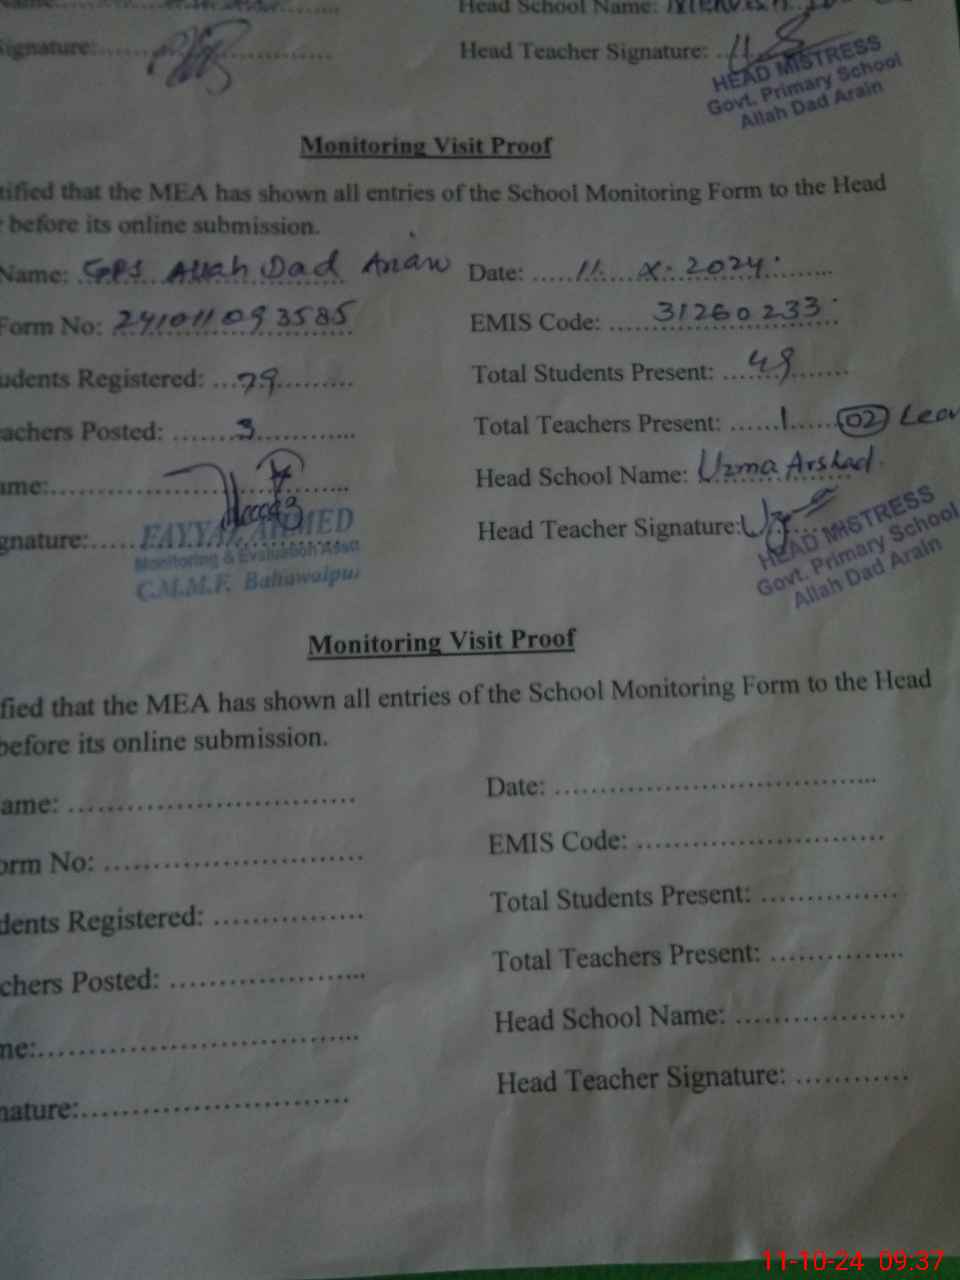 Head School Name:
ignature:............ Head Teacher Signature:
HEAD MISTRESS
Govt. Primary School
Allah Dad Arain
Monitoring Visit Proof
tified that the MEA has shown all entries of the School Monitoring Form to the Head
before its online submission.
Name: GPS Allah Dad Arain Date: 11. X. 2024.
Form No: 241011093585 EMIS Code: 31260233
udents Registered: 79 Total Students Present: 49
achers Posted: 3 Total Teachers Present: 1 (02) Leav
ame: Head School Name: Uzma Arshad.
gnature: Head Teacher Signature:
FAYYAZ AHMED
Monitoring & Evaluation Asstt
C.M.M.F. Bahawalpur
HEAD MISTRESS
Govt. Primary School
Allah Dad Arain
Monitoring Visit Proof
fied that the MEA has shown all entries of the School Monitoring Form to the Head
before its online submission.
ame: ............................ Date: ..................................
orm No: ............................ EMIS Code: ..........................
dents Registered: ................ Total Students Present: ...............
chers Posted: ..................... Total Teachers Present: ...............
me:................................... Head School Name: ...................
nature:............................ Head Teacher Signature: ............
11-10-24 09:37